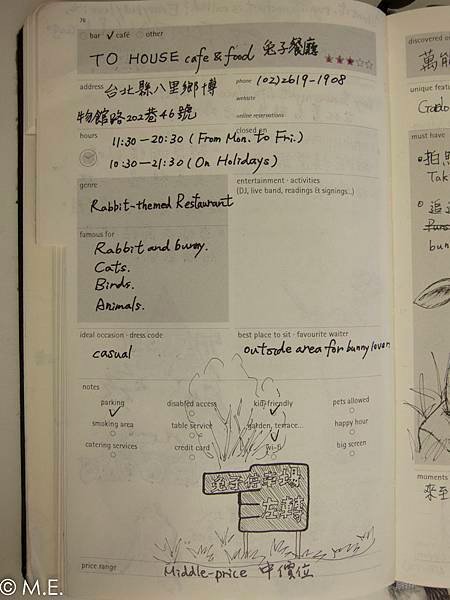 76
bar ✓ café other
TO HOUSE cafe & food 兔子餐廳 ★★★☆☆
address 台北縣八里鄉博
物館路202巷46號
phone (02)2619-1908
website
online reservations
hours 11:30－20:30 (From Mon. to Fri.)
closed on
10:30－21:30 (On Holidays)
genre
Rabbit-themed Restaurant
entertainment · activities
(DJ, live band, readings & signings...)
famous for
Rabbit and bunny.
Cats.
Birds.
Animals.
ideal occasion · dress code
casual
best place to sit · favourite waiter
outside area for bunny lover
notes
parking
disabled access
kid-friendly
pets allowed
smoking area
table service
garden, terrace...
happy hour
catering services
credit card
wi-fi
big screen
左轉
price range
Middle-price 中價位
discovered o
萬
unique feat
must have
拍照
Tak
追
bun
moments
來至
© M.E.